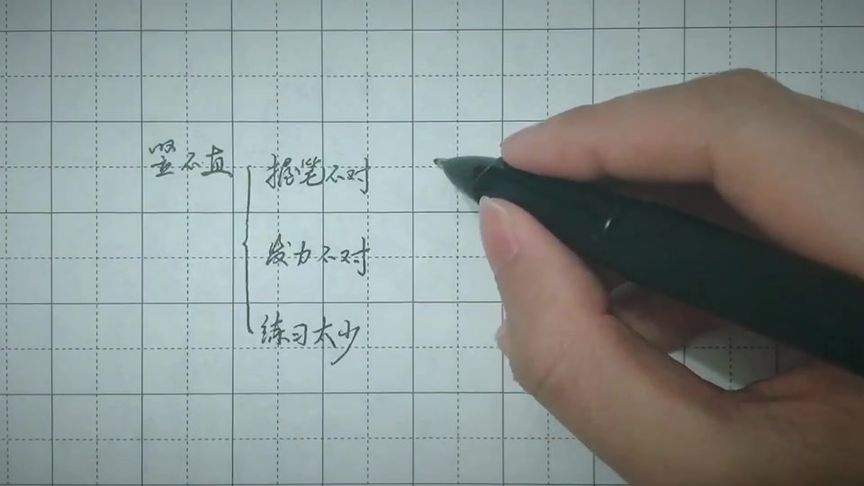 竖不直
握笔不对
发力不对
练习太少